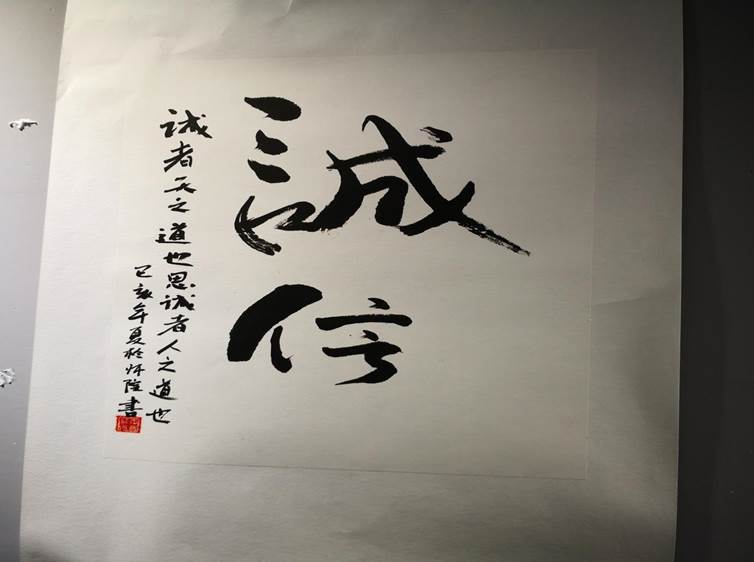 誠信
诚者天之道也思诚者人之道也
己亥年夏於怀隍書